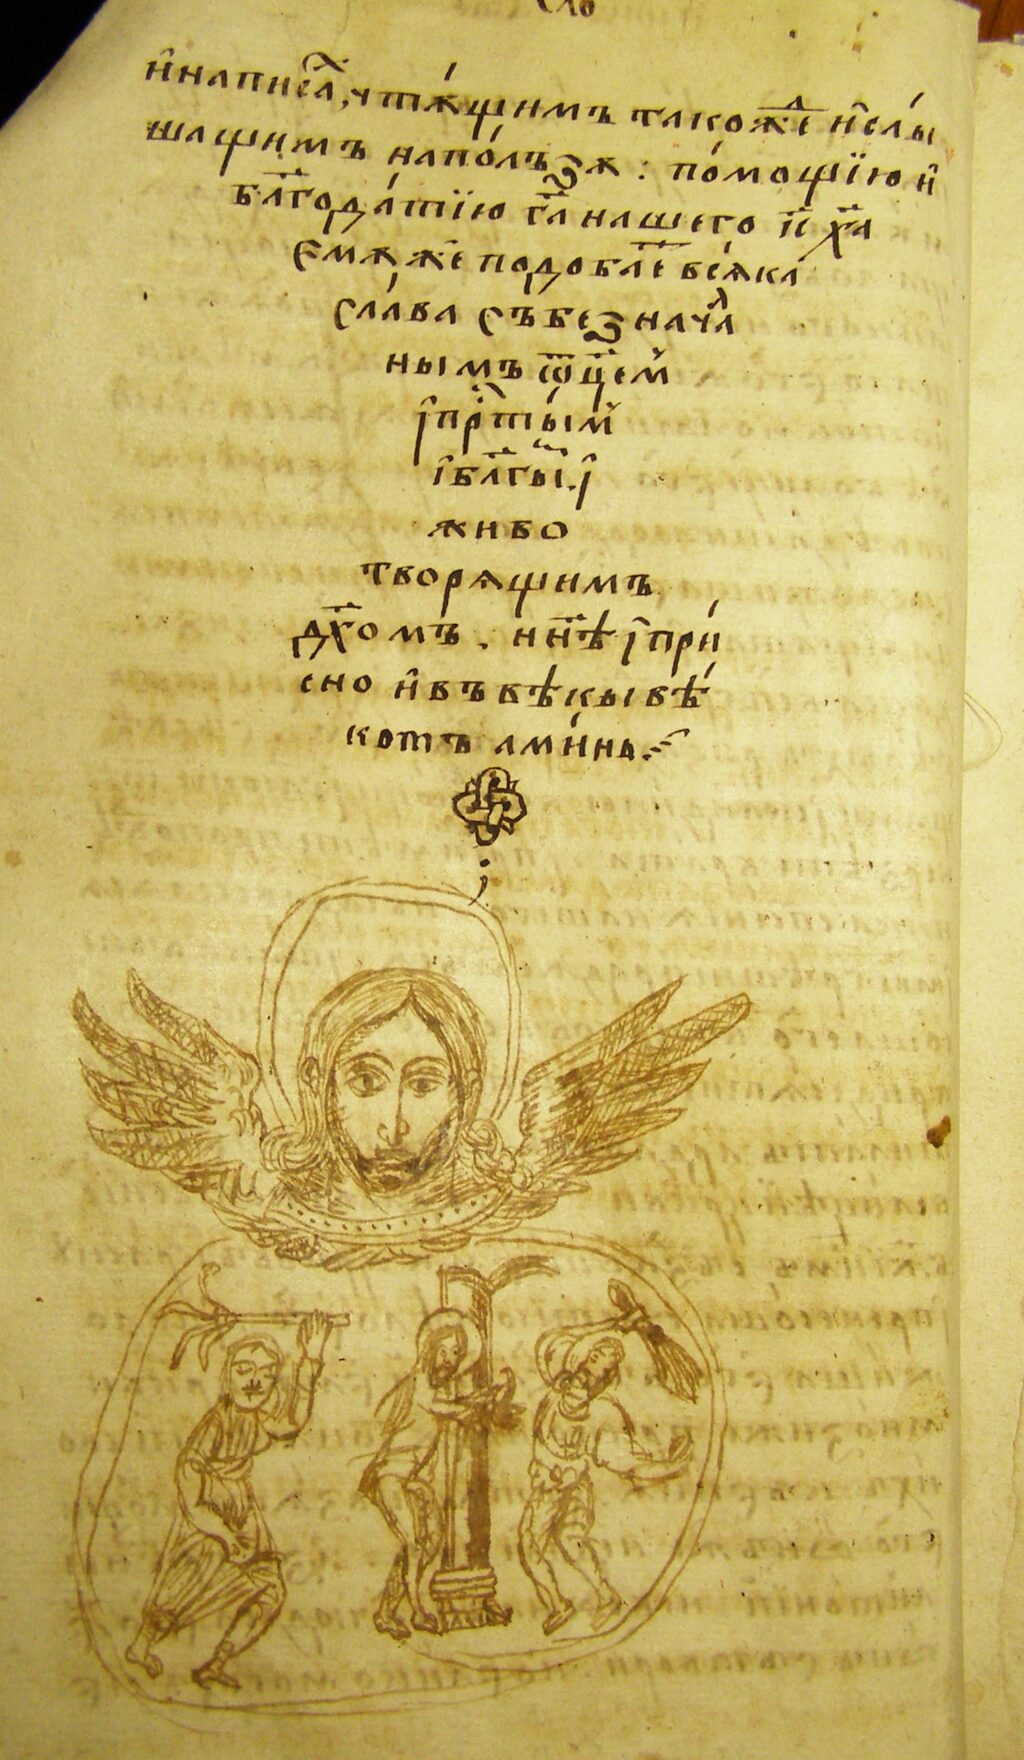 сло
и҆написа́л, чтѫ́щимъ такожⷣе и҆слы́
шащимъ напо́лъꙁѫ : по́мощїю и҆
бл҃года́тїю гⷭ҇а нашего і҃с х҃а
Ємѫ́же подобае҃ всѧ́ка
сла́ва съ беꙁначⷶл
нымъ ѿц҃емъ
і҆ прⷭ҇ты́мъ
і҆ бл҃гы́мъ. і҆
живо
творѧщимъ
дх҃омъ. нн҃ѣ і҆ при́
сно и҆ въ вѣкы вѣ́
котъ ами́нь.